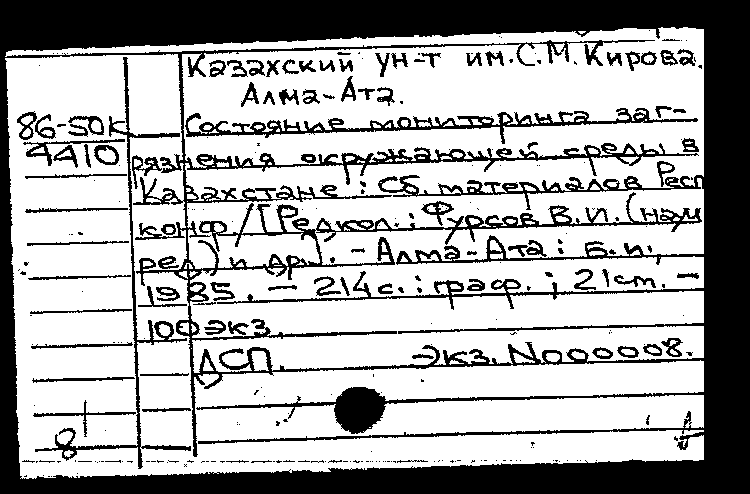 Казахский ун-т им. С.М. Кирова.
Алма-Ата.
86-50К Состояние мониторинга заг-
4410 рязнения окружающей среды в
Казахстане : Сб. материалов Респ
конф / [Редкол.: Фурсов В.И. (науч
ред) и др.]. - Алма-Ата : Б.и.,
1985. - 214 с. : граф. ; 21 см. -
100 экз.
ДСП. Экз. N000008.
8